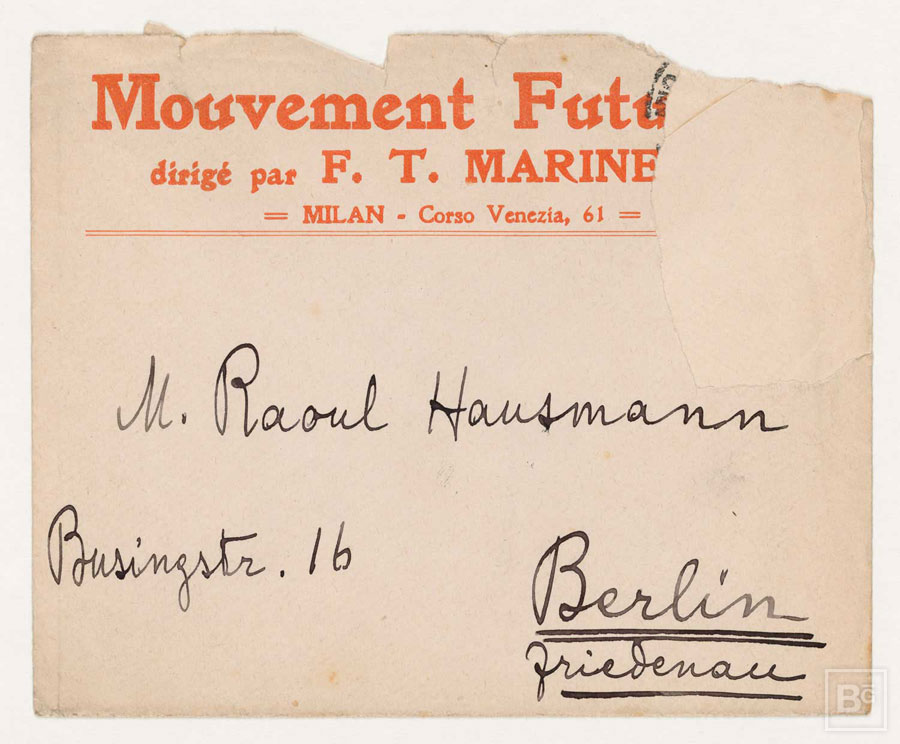 Mouvement Futu
dirigé par F. T. MARINE
= MILAN - Corso Venezia, 61 =
M. Raoul Hausmann
Busingstr. 16
Berlin
Friedenau
BG